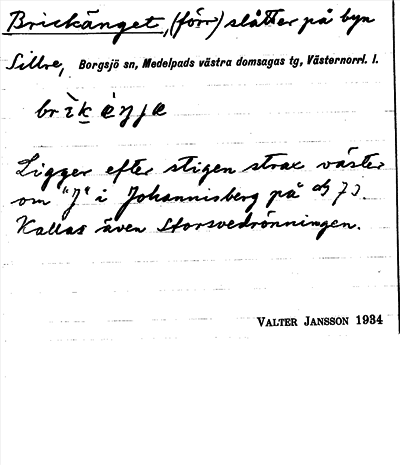 Brickänget, (förr) slåtter på byn
Sillre, Borgsjö sn, Medelpads västra domsagas tg, Västernorrl. l.
Ligger efter stigen strax väster
om "J" i Johannisberg på
Kallas även Storsvedrönningen.
VALTER JANSSON 1934